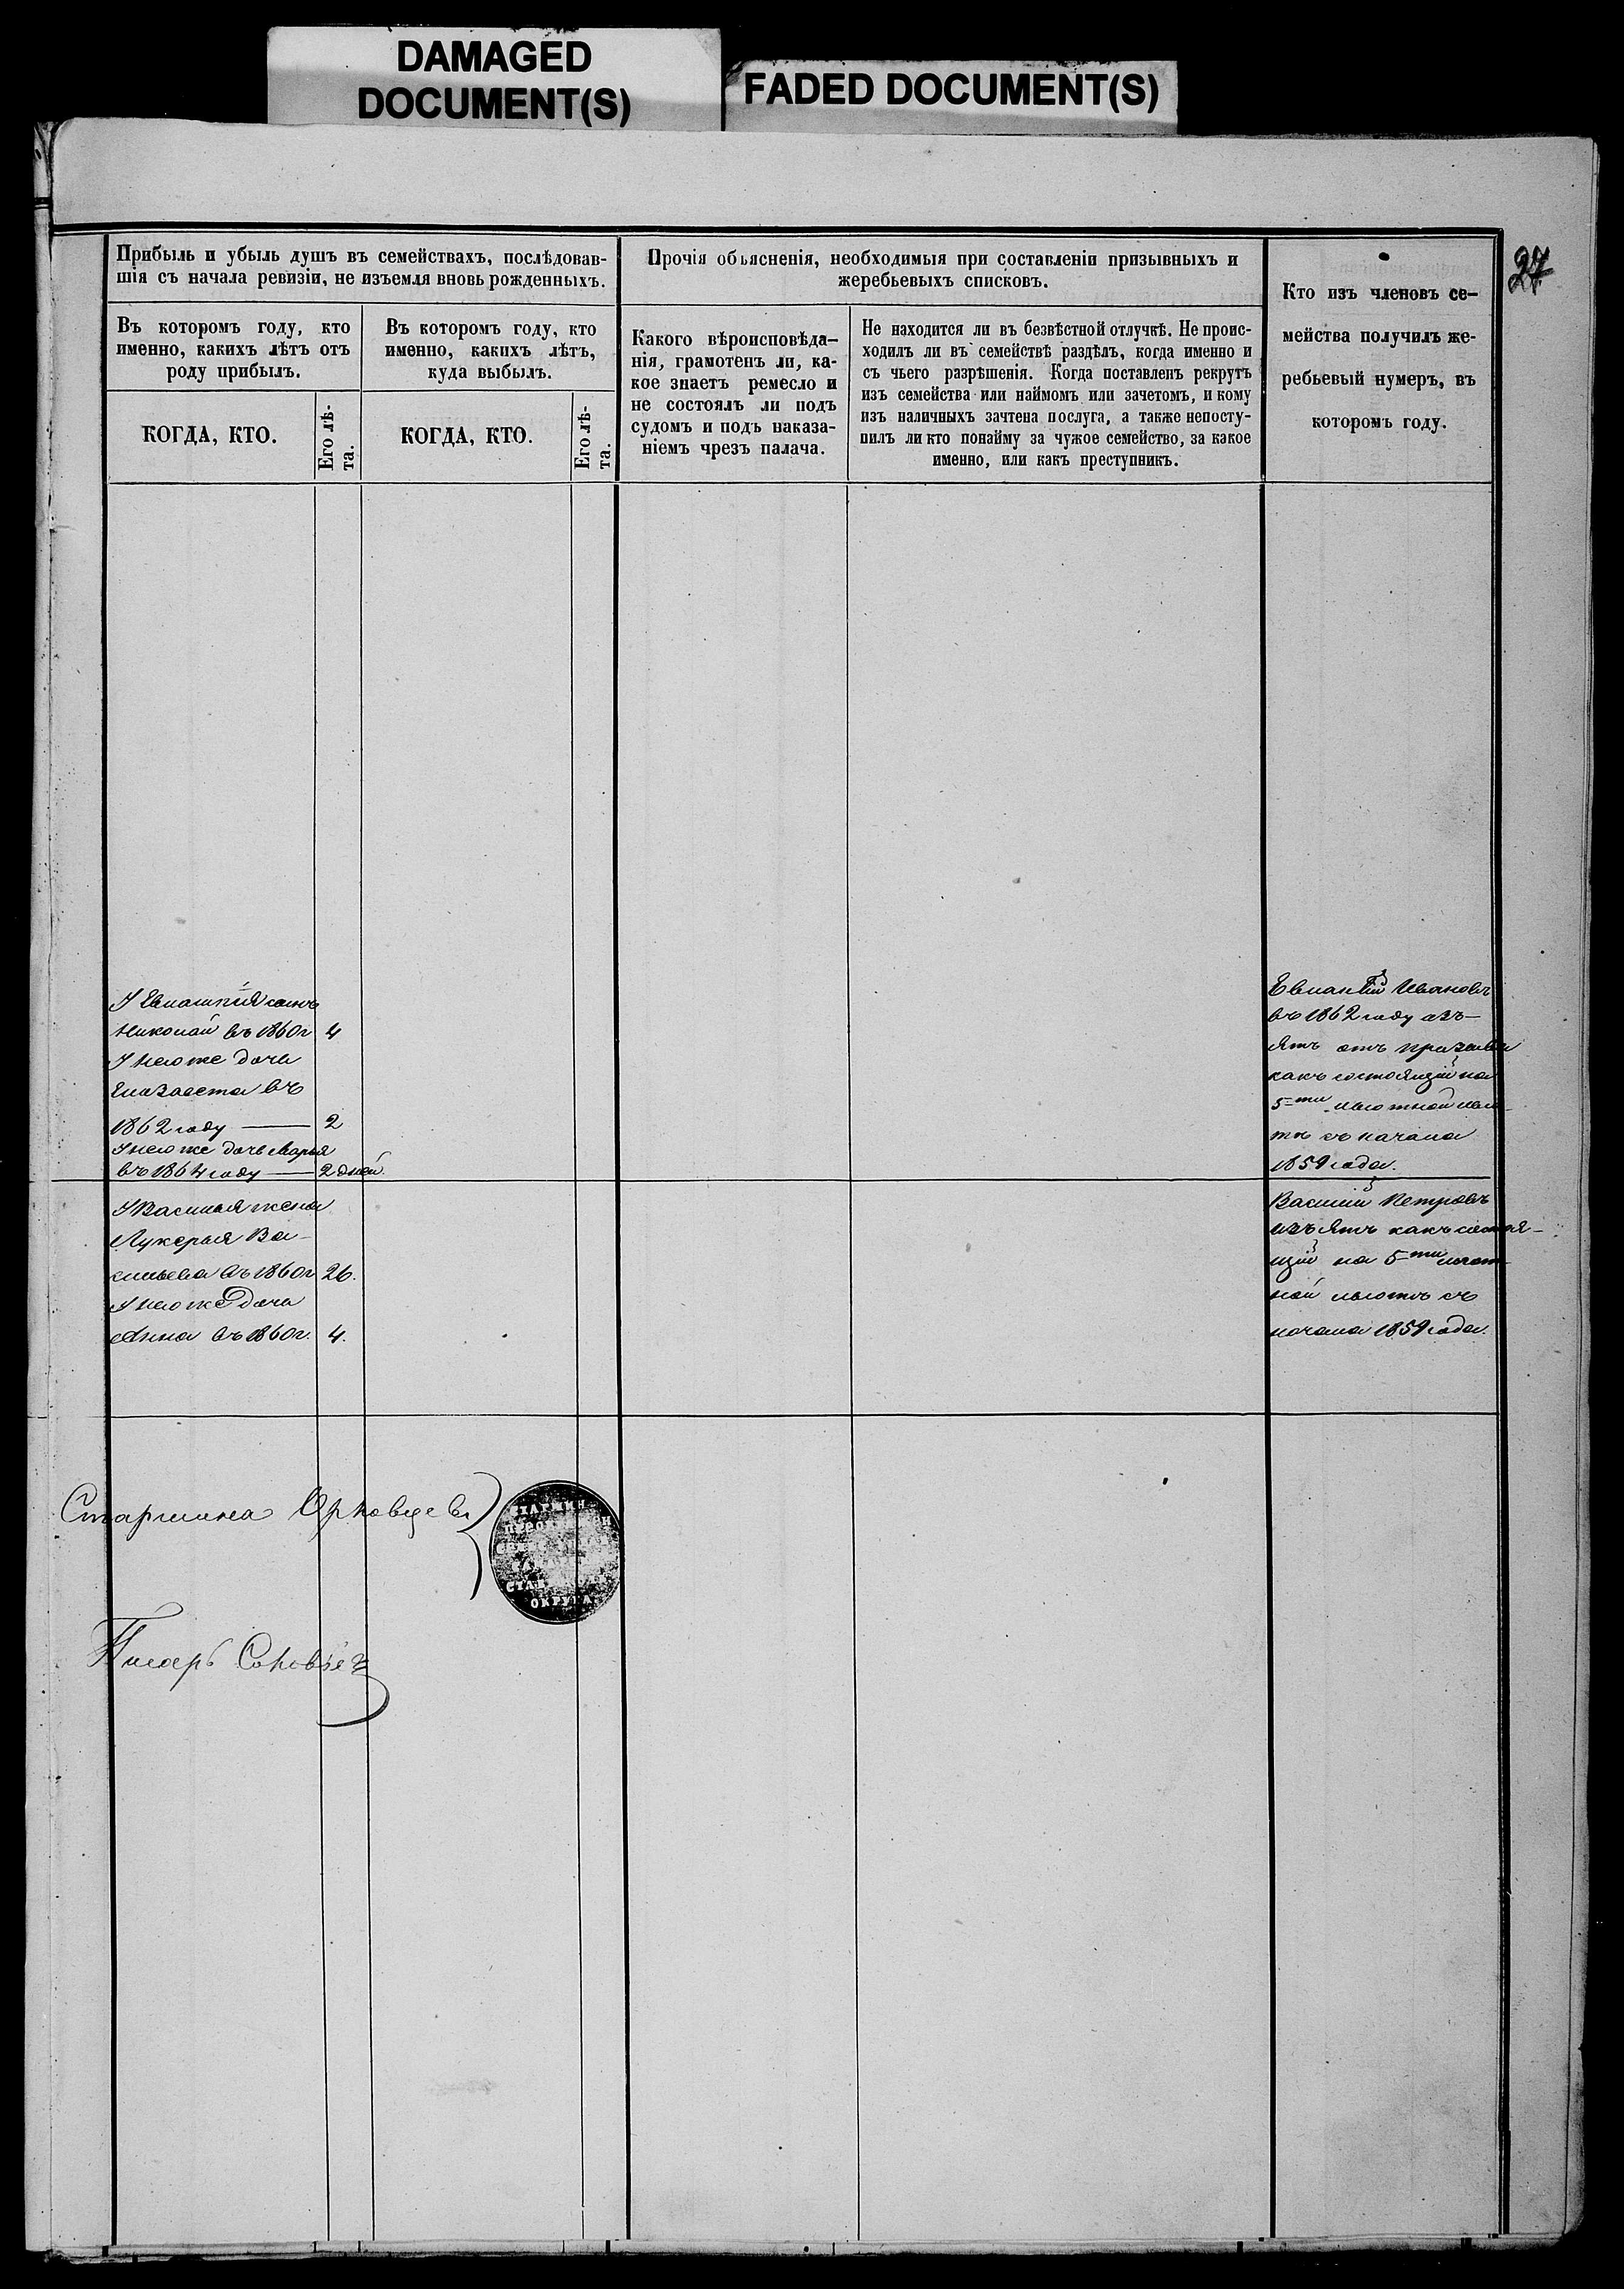 DAMAGED
DOCUMENT(S)
FADED DOCUMENT(S)
27
Прибыль и убыль душъ въ семействахъ, послѣдовав-
шія съ начала ревизіи, не изъемля вновь рожденныхъ.
Въ которомъ году, кто
именно, какихъ лѣтъ отъ
роду прибылъ.
КОГДА, КТО.
Его лѣ-
та.
Въ которомъ году, кто
именно, какихъ лѣтъ,
куда выбылъ.
КОГДА, КТО.
Его лѣ-
та.
Прочія объясненія, необходимыя при составленіи призывныхъ и
жеребьевыхъ списковъ.
Какого вѣроисповѣда-
нія, грамотенъ ли, ка-
кое знаетъ ремесло и
не состоялъ ли подъ
судомъ и подъ наказа-
ніемъ чрезъ палача.
Не находится ли въ безвѣстной отлучкѣ. Не проис-
ходилъ ли въ семействѣ раздѣлъ, когда именно и
съ чьего разрѣшенія. Когда поставленъ рекрутъ
изъ семейства или наймомъ или зачетомъ, и кому
изъ наличныхъ зачтена послуга, а также непосту-
пилъ ли кто понайму за чужое семейство, за какое
именно, или какъ преступникъ.
Кто изъ членовъ се-
мейства получилъ же-
ребьевый нумеръ, въ
которомъ году.
У Евлампія сынъ
Николай въ 1860г 4
У него же дочь
Елизавета въ
1862 году — 2
У него же дочь Марья
въ 1864 году — 2 дней.
У Василья жена
Лукерья Ва-
сильева въ 1860г 26.
У него же дочь
Анна въ 1860г. 4.
Евлампій Ивановъ
въ 1862 году изъ-
ятъ отъ призыва
какъ состоящій на
5-ти лѣтной льго-
тѣ съ начала
1859 года.
Василій Петровъ
изъятъ какъ состоя-
щій на 5-ти лѣт-
ной льготѣ съ
начала 1859 года.
Старшина
Писарь
ОКРУГА